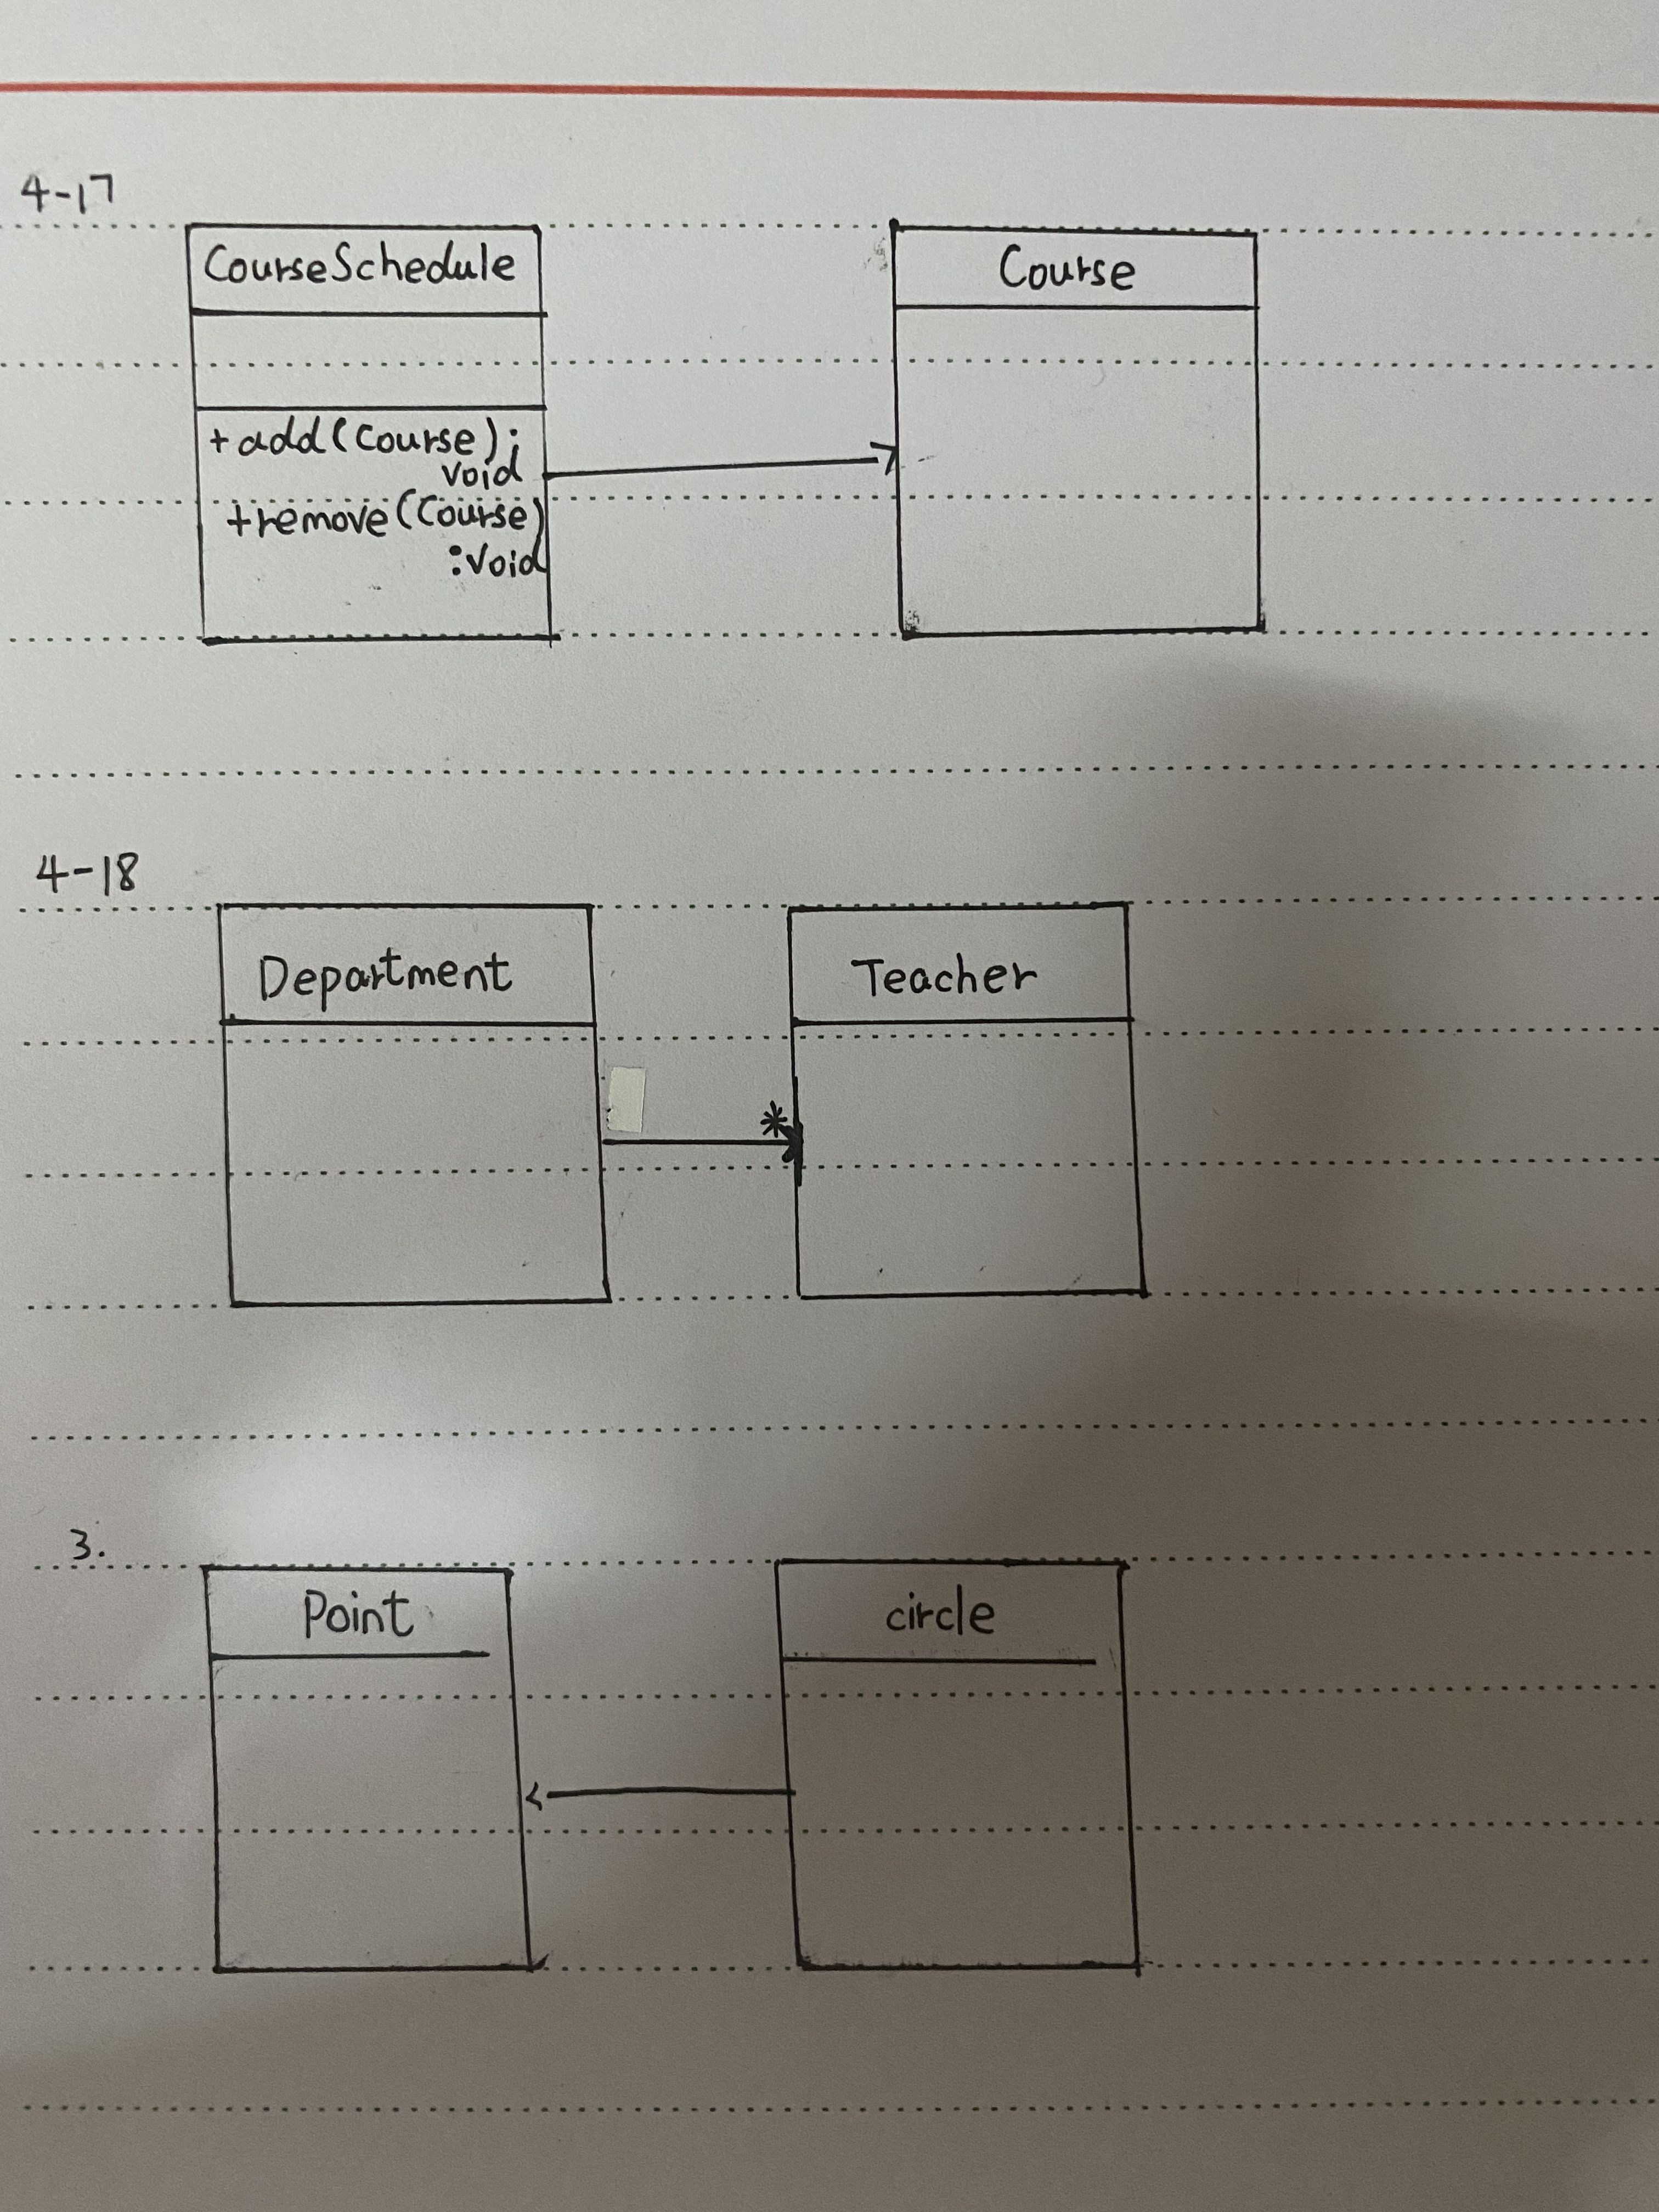 4-17
CourseSchedule
Course
+add(Course):
void
+remove(Course)
:void
4-18
Department
Teacher
*
3.
Point
circle